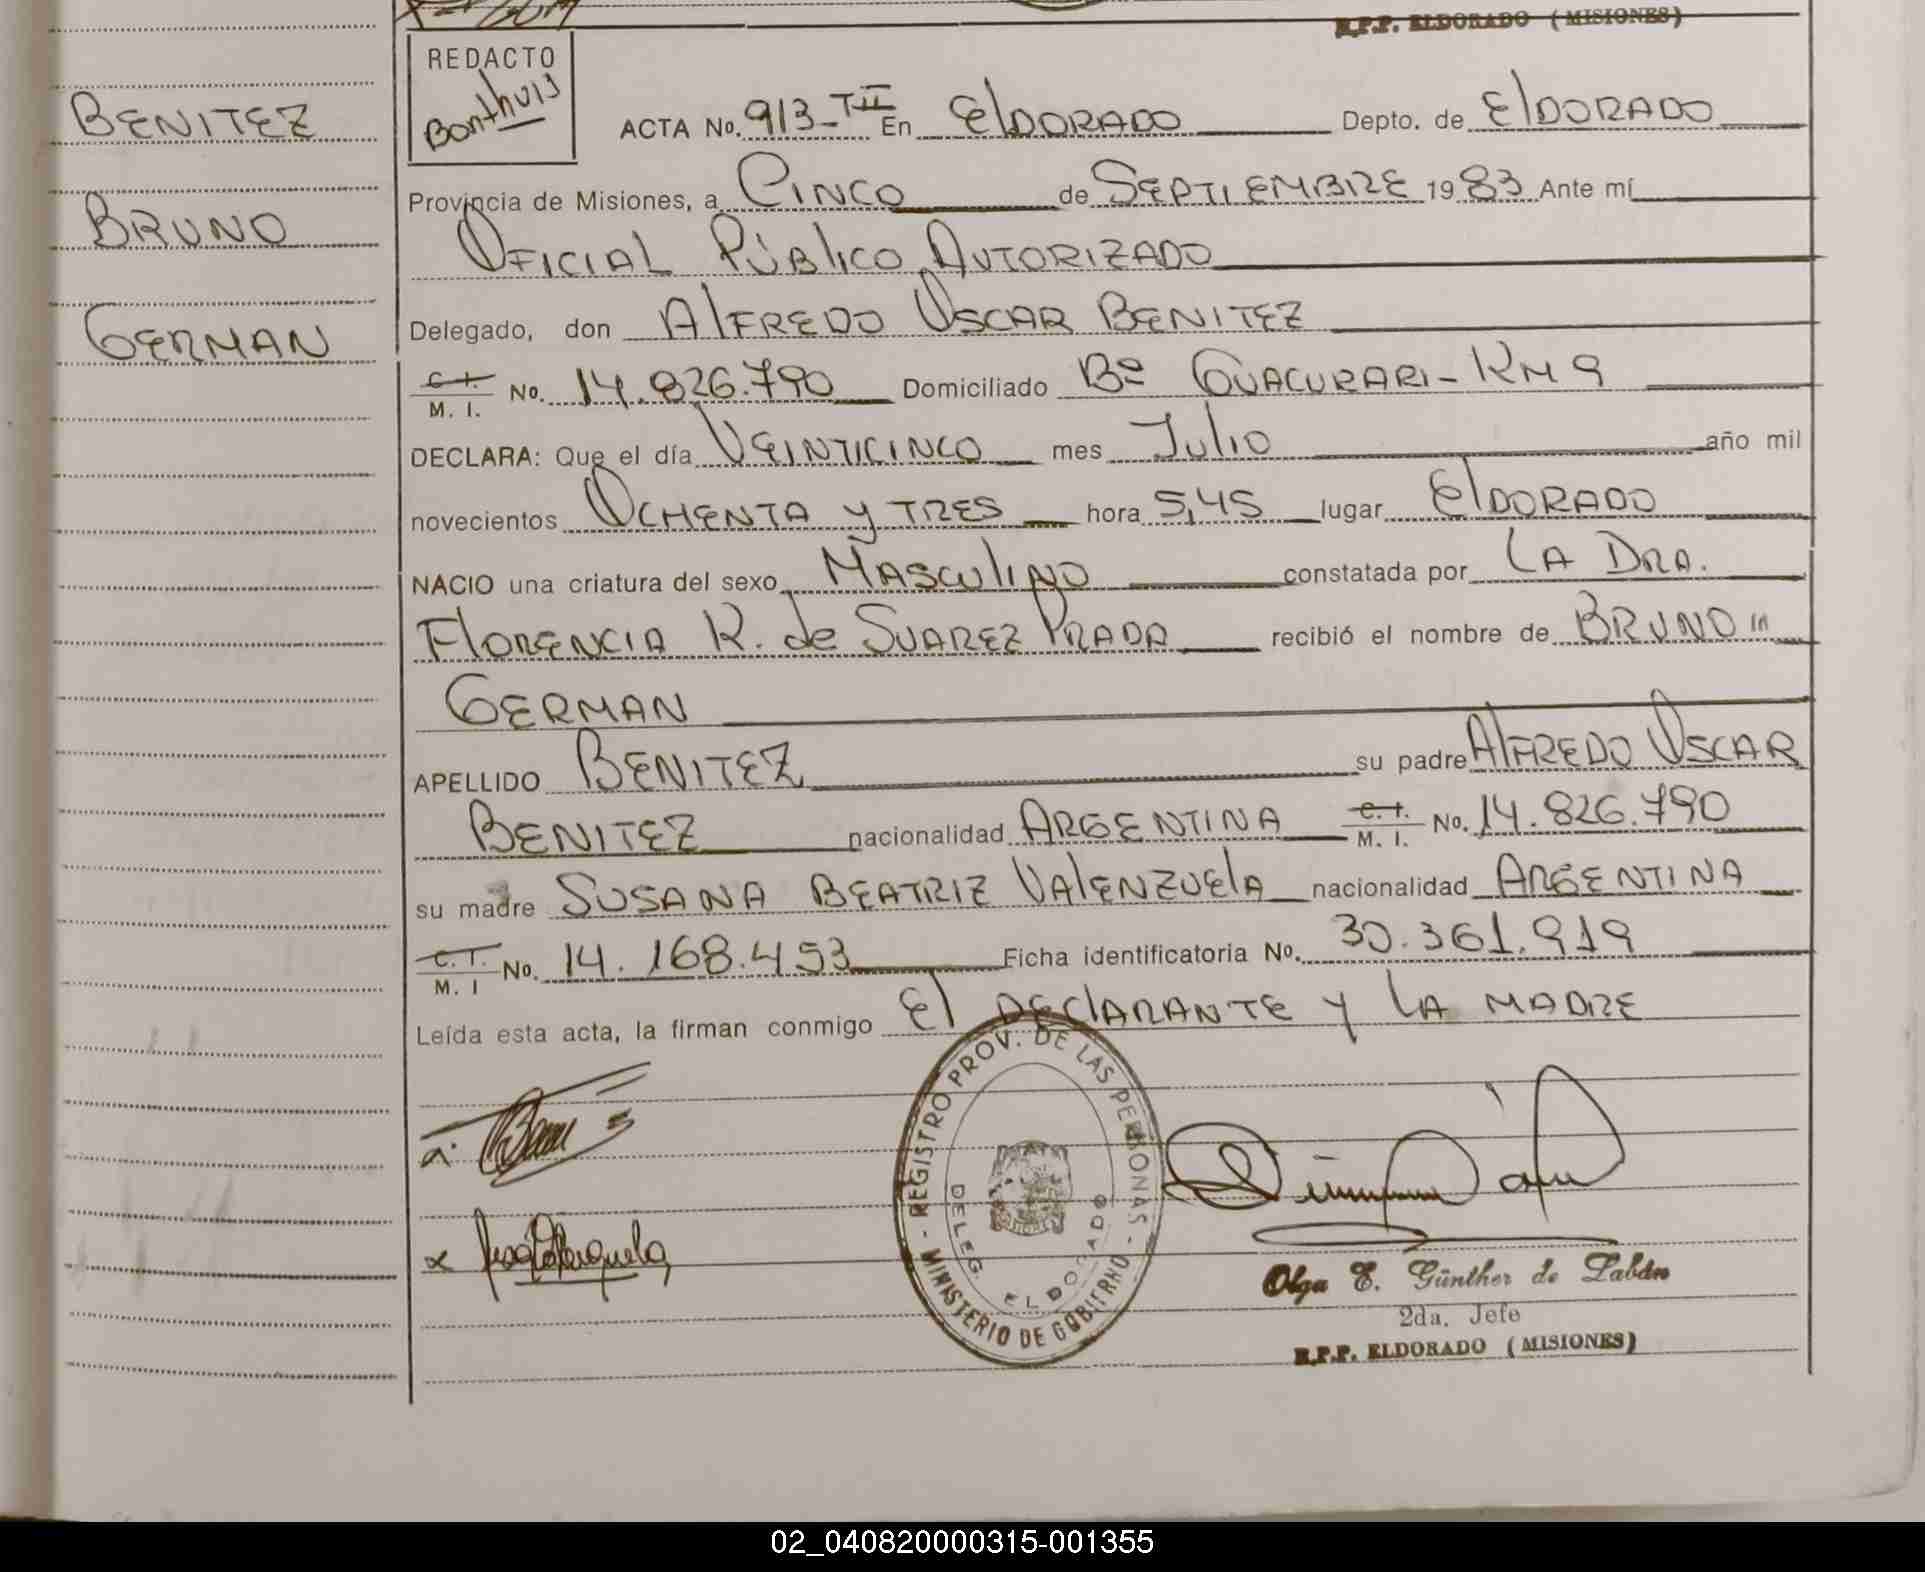 R.P.P. ELDORADO (MISIONES)
REDACTO
Bonthuis
BENITEZ
BRUNO
GERMAN
ACTA No. 913-TII En ElDORADO Depto. de ElDORADO
Provincia de Misiones, a CINCO de SEPTIEMBRE 1983 Ante mí
OFICIAL PÚBlICO AUTORIZADO
Delegado, don AlFREDO OSCAR BENITEZ
C.I. M. I. No. 14.826.790 Domiciliado Bº GUACURARI-KM 9
DECLARA: Que el día VEINTICINCO mes JulIO año mil
novecientos OCHENTA y TRES hora 5,45 lugar ElDORADO
NACIO una criatura del sexo MASCulINO constatada por LA DRA.
FlORENCIA K. de SUAREZ PRADA recibió el nombre de BRUNO
GERMAN
APELLIDO BENITEZ su padre AlFREDO OSCAR
BENITEZ nacionalidad ARGENTINA C.I. M. I. No. 14.826.790
su madre SUSANA BEATRIZ VAlENZUElA nacionalidad ARGENTINA
C.I. M. I No. 14.168.453 Ficha identificatoria No. 30.361.919
Leída esta acta, la firman conmigo El DEClARANTE y LA MADRE
REGISTRO PROV. DE LAS PERSONAS - MINISTERIO DE GOBIERNO -
DELEG. ELDORADO
Olga E. Günther de Labán
2da. Jefe
R.P.P. ELDORADO (MISIONES)
02_040820000315-001355